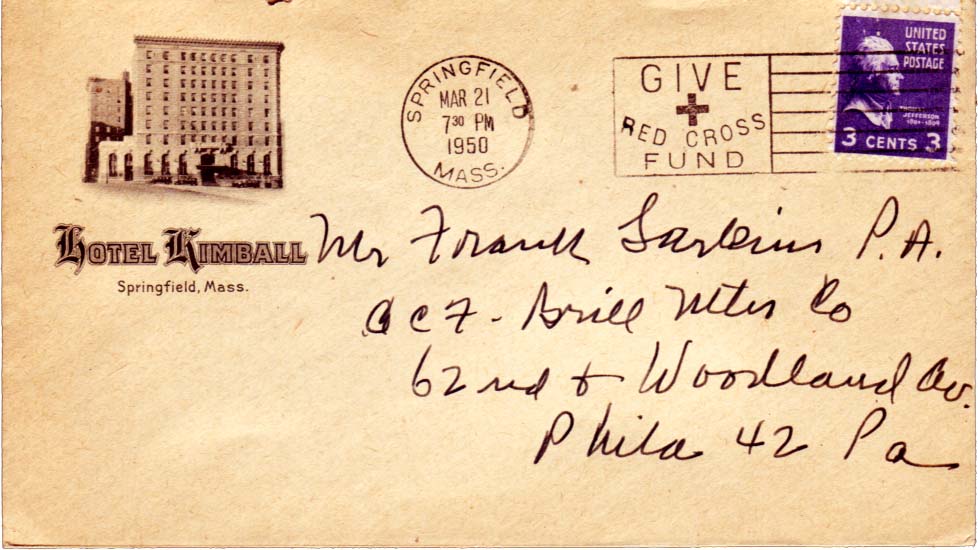 SPRINGFIELD
MAR 21
7 30 PM
1950
MASS.
GIVE
RED CROSS
FUND
UNITED
STATES
POSTAGE
JEFFERSON
3 CENTS 3
HOTEL KIMBALL
Springfield, Mass.
Mr Frank P.A.
a c f - Brill Mtrs Co
62nd & Woodland Av.
Phila 42 Pa